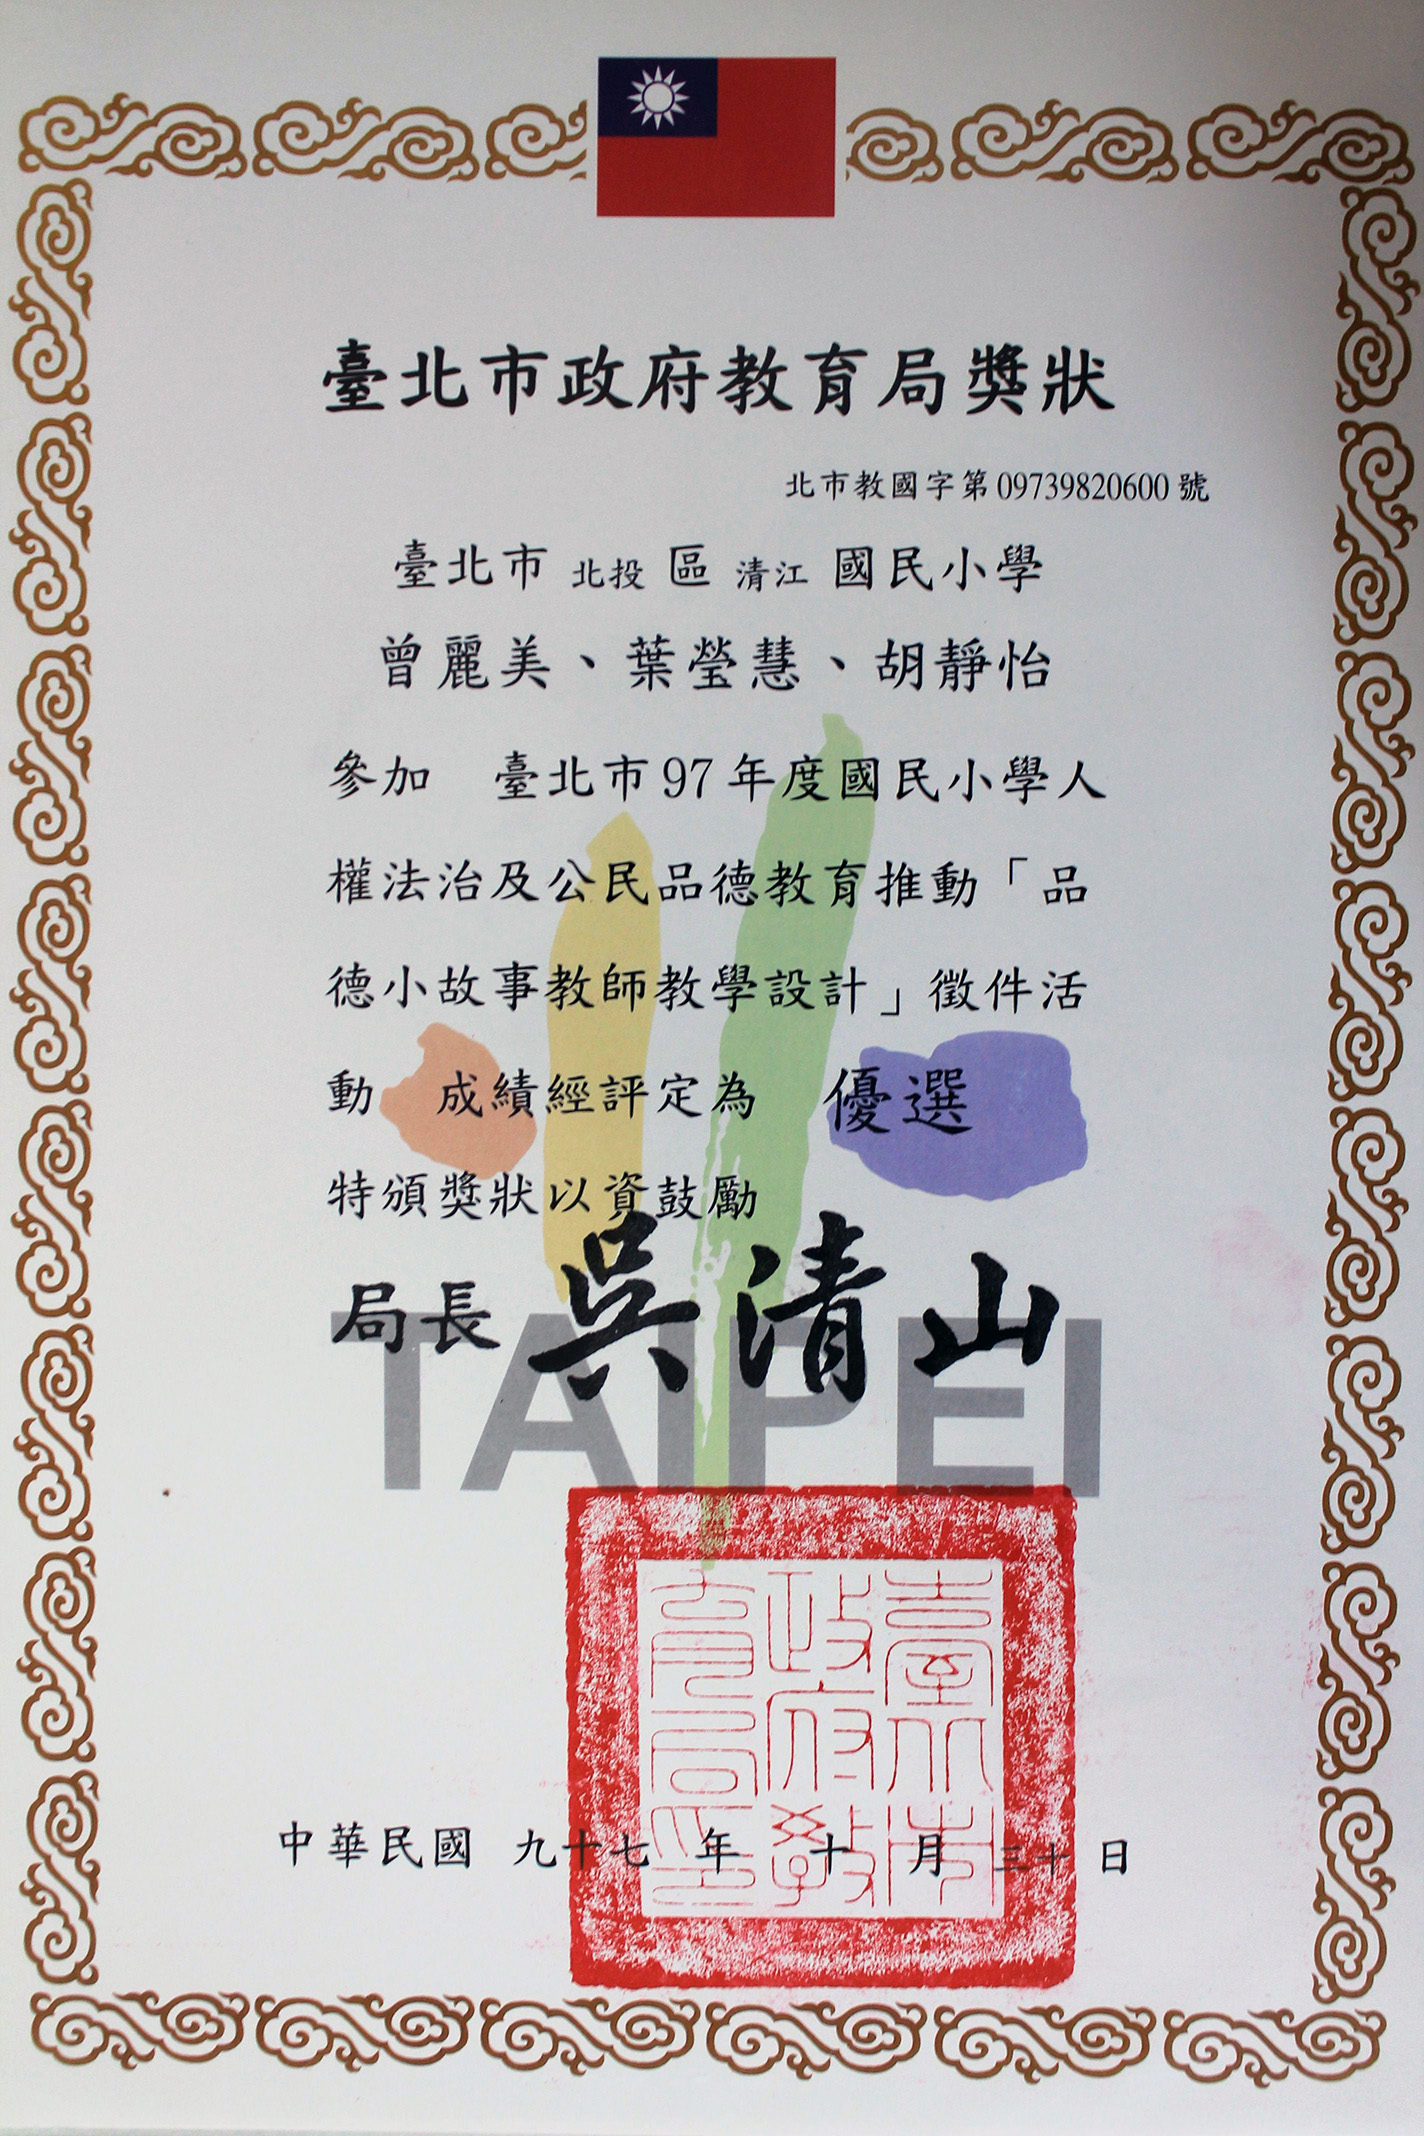 臺北市政府教育局獎狀
北市教國字第09739820600號
臺北市 北投 區 清江 國民小學
曾麗美、葉瑩慧、胡靜怡
參加 臺北市97年度國民小學人
權法治及公民品德教育推動「品
德小故事教師教學設計」徵件活
動 成績經評定為 優選
特頒獎狀以資鼓勵
局長 吳清山
TAIPEI
臺北市政府教育局印
中華民國 九十七 年 十 月 三十 日